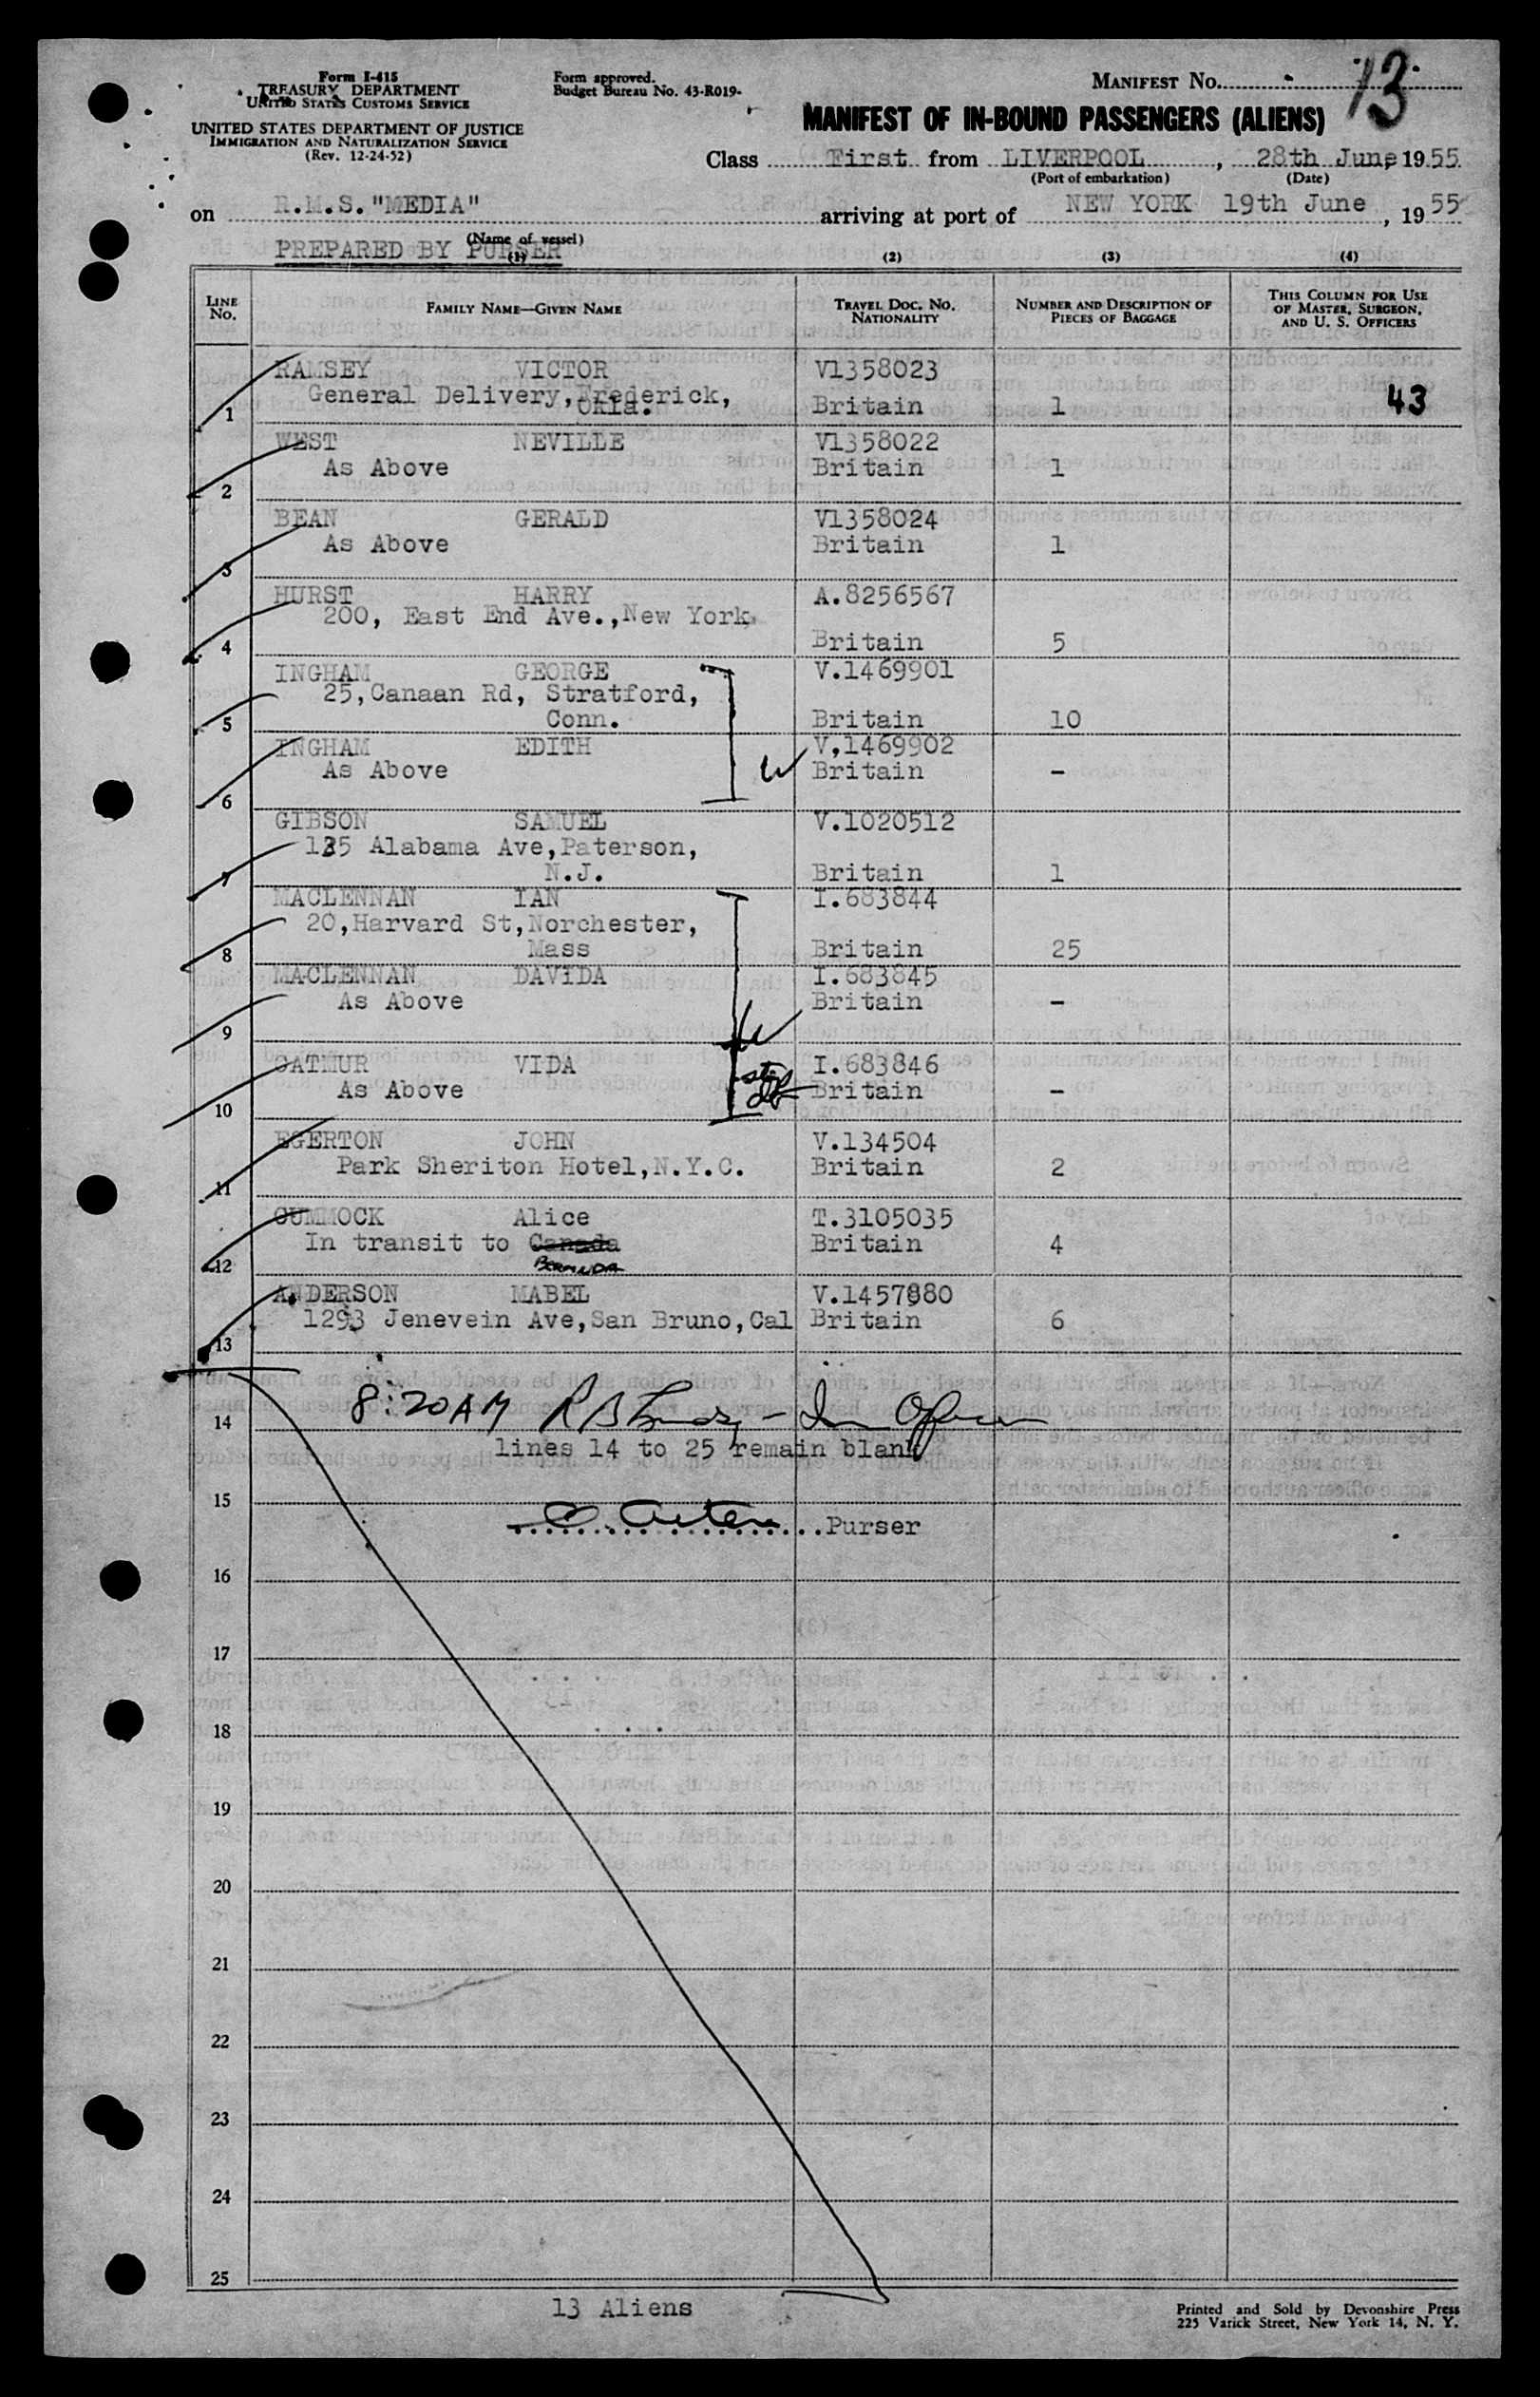 Form I-415
TREASURY DEPARTMENT
UNITED STATES CUSTOMS SERVICE
UNITED STATES DEPARTMENT OF JUSTICE
IMMIGRATION AND NATURALIZATION SERVICE
(Rev. 12-24-52)
Form approved.
Budget Bureau No. 43-R019-
MANIFEST No. 13
MANIFEST OF IN-BOUND PASSENGERS (ALIENS)
Class First from LIVERPOOL, 28th June, 1955
(Port of embarkation) (Date)
on R.M.S."MEDIA" arriving at port of NEW YORK 19th June, 1955
(Name of vessel)
PREPARED BY PURSER
(1) (2) (3) (4)
LINE No. FAMILY NAME—GIVEN NAME TRAVEL DOC. NO. NATIONALITY NUMBER AND DESCRIPTION OF PIECES OF BAGGAGE THIS COLUMN FOR USE OF MASTER, SURGEON, AND U. S. OFFICERS
RAMSEY VICTOR V1358023
General Delivery, Frederick,
1 Okla. Britain 1 43
WEST NEVILLE V1358022
As Above Britain 1
2
BEAN GERALD V1358024
As Above Britain 1
3
HURST HARRY A.8256567
200, East End Ave.,New York
4 Britain 5
INGHAM GEORGE V.1469901
25,Canaan Rd, Stratford,
5 Conn. Britain 10
INGHAM EDITH V,1469902
As Above W Britain -
6
GIBSON SAMUEL V.1020512
135 Alabama Ave,Paterson,
7 N.J. Britain 1
MACLENNAN IAN I.683844
20,Harvard St,Norchester,
8 Mass Britain 25
MACLENNAN DAVIDA I.683845
As Above Britain -
9 W
GATMUR VIDA I.683846
As Above Britain -
10
EGERTON JOHN V.134504
Park Sheriton Hotel,N.Y.C. Britain 2
11
CUMMOCK Alice T.3105035
In transit to Canada Britain 4
12 BERMUDA
ANDERSON MABEL V.1457980
1293 Jenevein Ave,San Bruno,Cal Britain 6
13
8:20AM
14
lines 14 to 25 remain blank
15
Purser
16
17
18
19
20
21
22
23
24
25
13 Aliens
Printed and Sold by Devonshire Press
225 Varick Street, New York 14, N. Y.